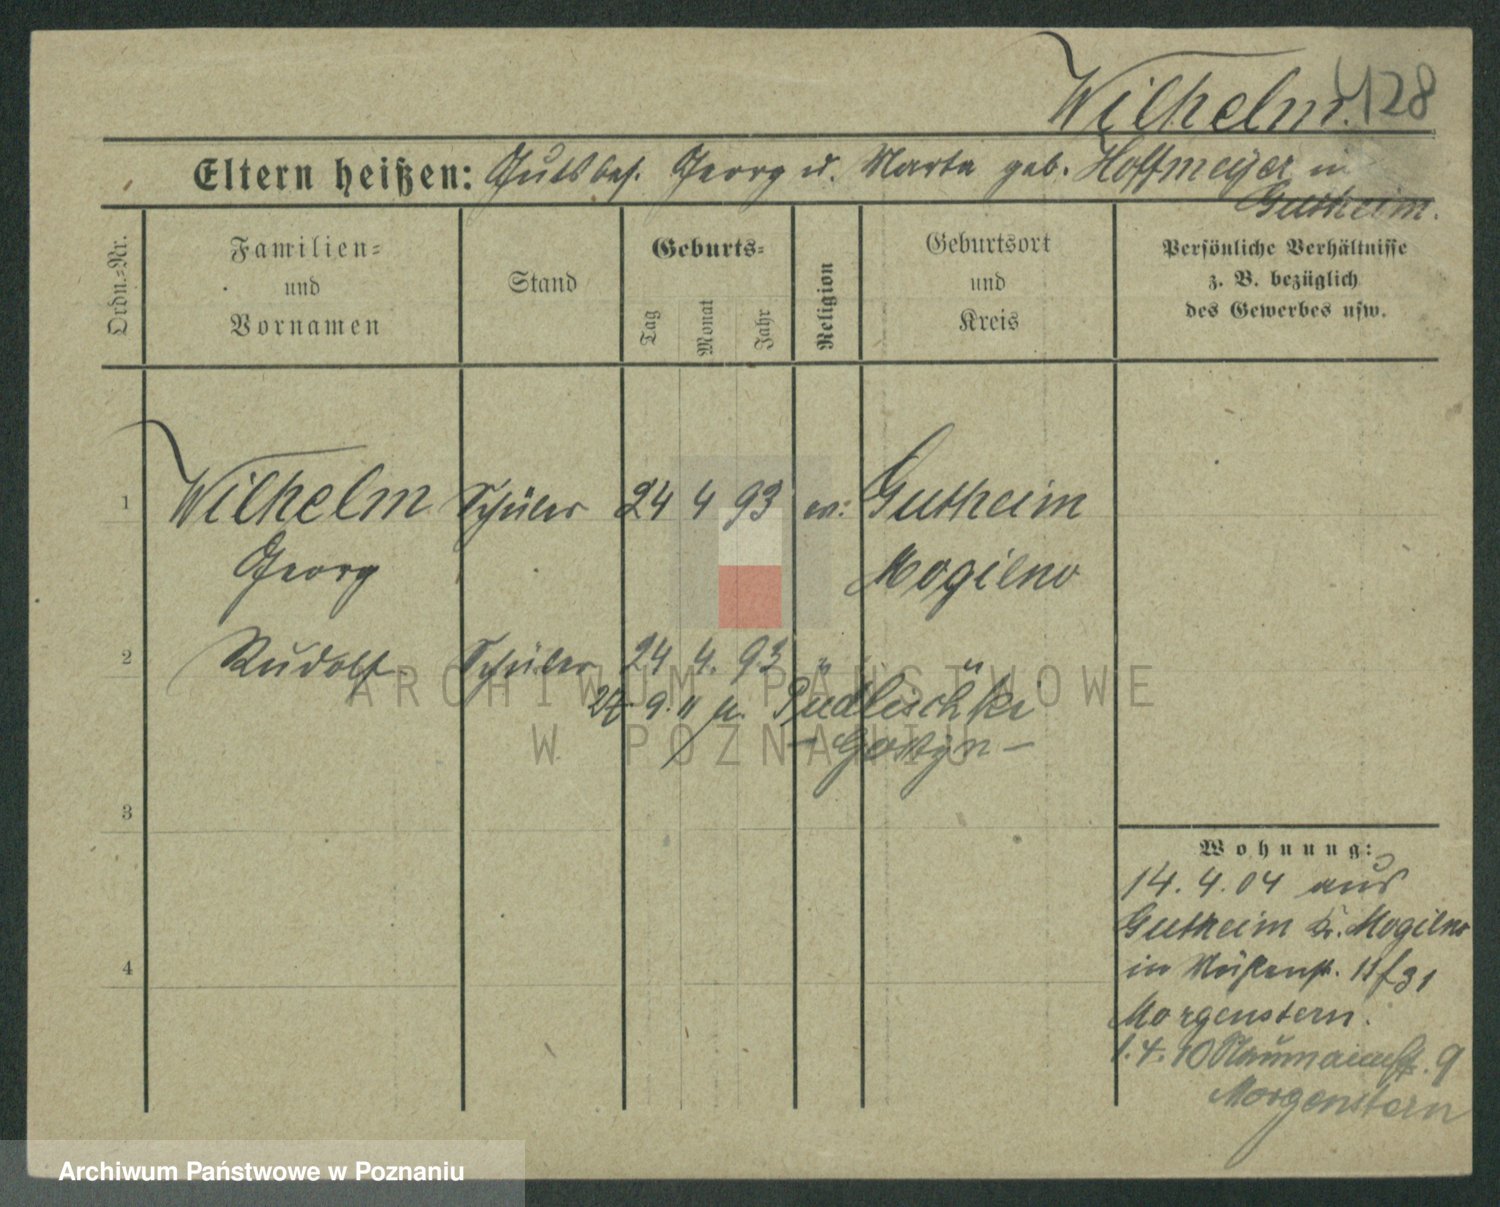 Wilhelm. 128
Eltern heißen: Gutsbes. Georg u. Marta geb. Hoffmeyer in
Gutheim.
Ordn.=Nr.
Familien=
und
Vornamen
Stand
Geburts=
Tag
Monat
Jahr
Religion
Geburtsort
und
Kreis
Persönliche Verhältnisse
z. B. bezüglich
des Gewerbes usw.
1 Wilhelm Schüler 24 4 93 ev: Gutheim
Georg Mogilno
2 Rudolf Schüler 24 4. 93 " "
27. 9. 11 n. Pudlischki
– Gostyn –
3
4
Wohnung:
14. 4. 04 aus
Gutheim Kr. Mogilno
in 11/31
Morgenstern.
1. 4. 10 Naumannstr. 9
Morgenstern
ARCHIWUM PAŃSTWOWE
W POZNANIU
Archiwum Państwowe w Poznaniu